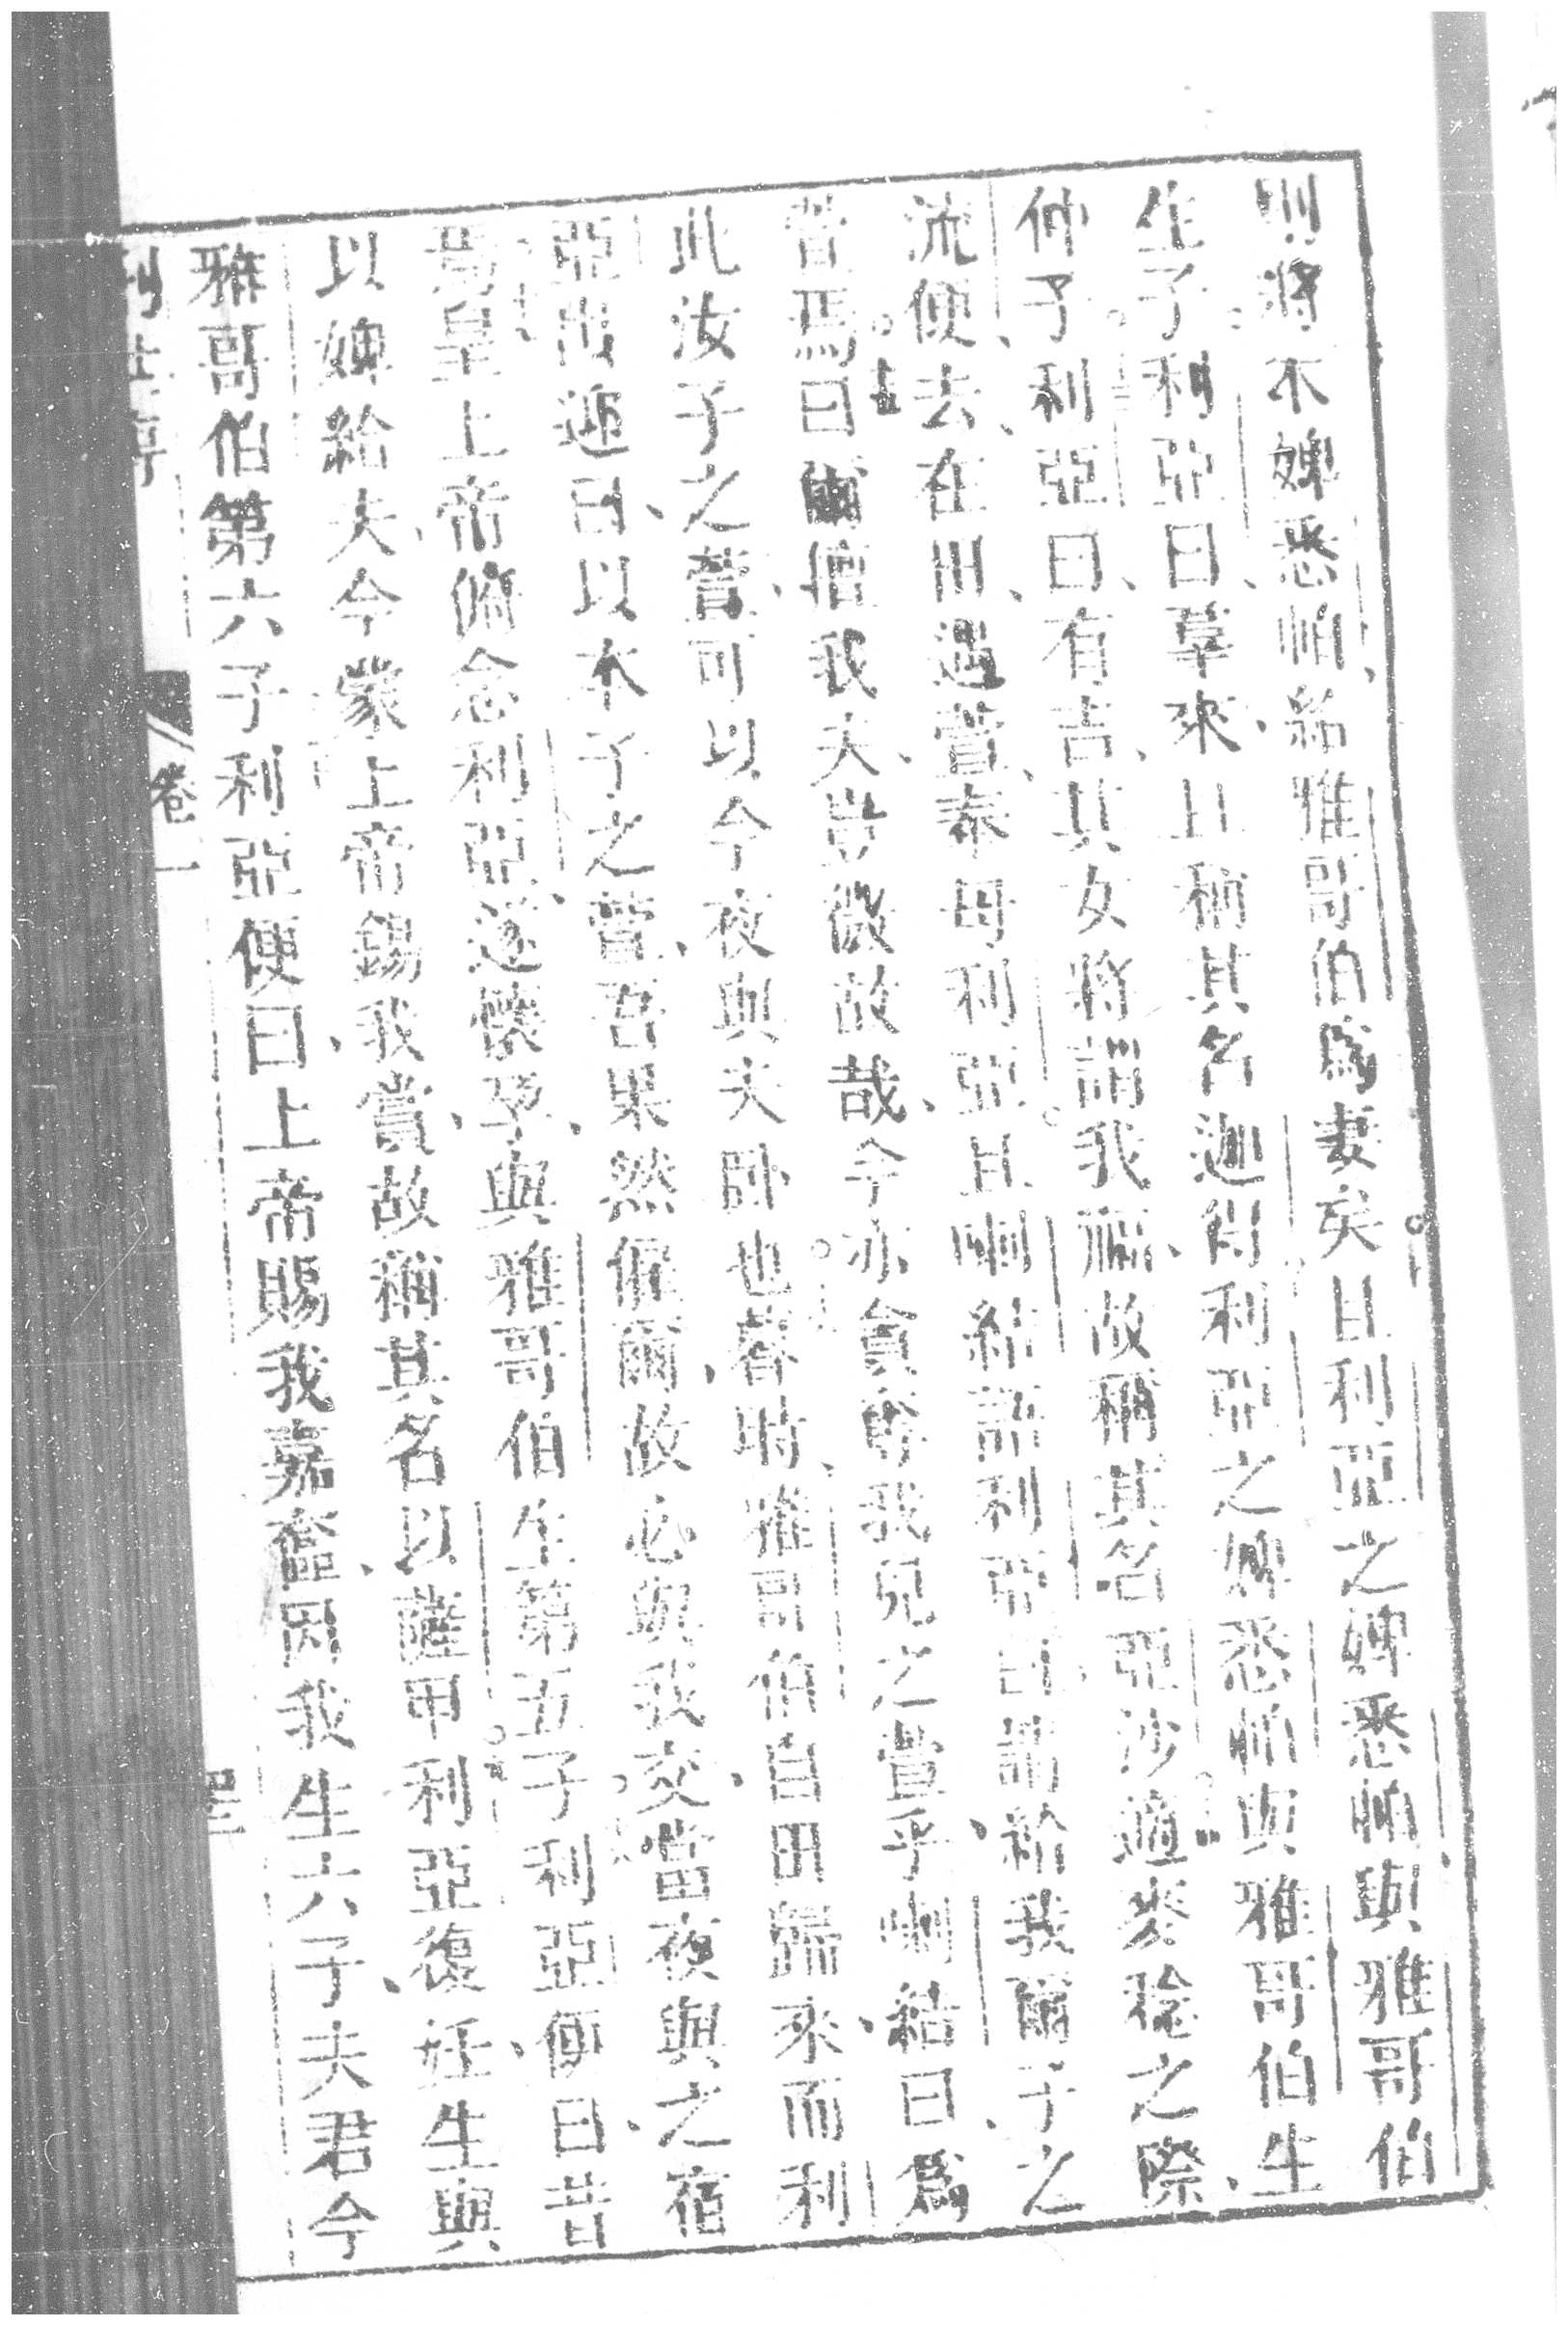 則將本婢悉帕給雅哥伯爲妻矣且利亞之婢悉帕與雅哥伯
生子利亞曰羣來且稱其名迦得利亞之婢悉帕與雅哥伯生
仲子利亞曰有吉其女將謂我福故稱其名亞沙適麥稔之際
流便去在田遇菅奉母利亞且喇結謂利亞曰請給我爾子之
菅焉曰爾擅我夫豈微故哉今亦貪奪我兒之菅乎喇結曰爲
此汝子之菅可以今夜與夫卧也暮時雅哥伯自田歸來而利
亞出迎曰以本子之菅吾果然僱爾故必與我交當夜與之宿
焉皇上帝俯念利亞遂懷孕與雅哥伯生第五子利亞便曰昔
以婢給夫今蒙上帝錫我賞故稱其名以薩甲利亞復妊生與
雅哥伯第六子利亞便曰上帝賜我嘉奩因我生六子夫君今
卷一